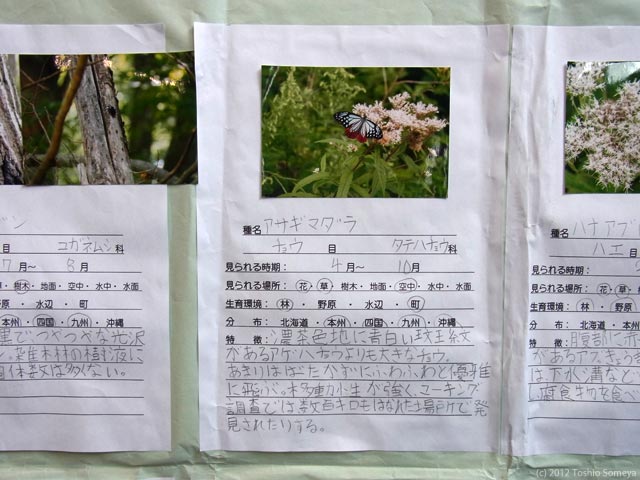 コガネムシ科
7月〜 8月
樹木・地面・空中・水中・水面
野原 ・ 水辺 ・ 町
本州・四国・九州・沖縄
黒でつやつやな光沢
雑木林の樹液に
個体数は多くない。
種名 アサギマダラ
チョウ 目 タテハチョウ科
見られる時期: 4月〜 10月
見られる場所: 花・草 樹木・地面・空中・水中・水面
生育環境: 林 ・ 野原 ・ 水辺 ・ 町
分 布: 北海道・本州・四国・九州・沖縄
特 徴: 濃茶色地に青白い斑紋
があるアゲハチョウよりも大きなチョウ。
あまりはばたかずにふわふわと優雅
に飛ぶ。移動性が強く、マーキング
調査では数百キロもはなれた場所で発
見されたりする。
種名 ハナアブ
ハエ 目
見られる時期:
見られる場所: 花・草
生育環境: 林
分 布: 北海道・本
特 徴: 腹部に
がある
は下水溝など
腐食物を食べ
(c) 2012 Toshio Someya